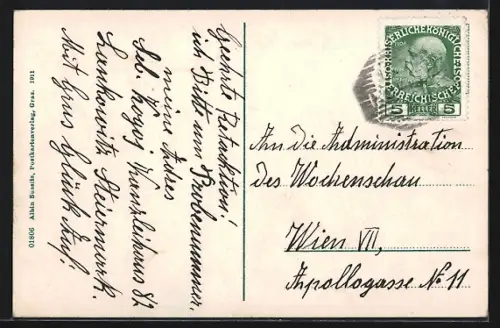 Geehrte Redaktion!
ich Bitt um Probenummer.
meine Adres
Seb. Kogoj Kanzleihaus 82
Lankowitz Steiermark.
Mit Grus Glück Auf!
01806 Albin Sussitz, Postkartenverlag, Graz. 1911
KAISERLICHE KÖNIGLICHE
ÖSTERREICHISCHE
5 HELLER 5
An die Administration
des Wochenschau
Wien VII,
Apollogasse No 11